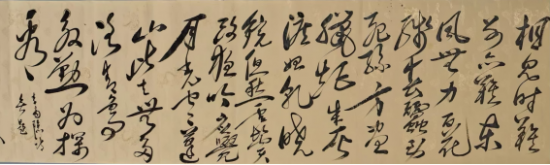 相見時難
别亦難東
風無力百花
殘春蠶到
死絲方盡
蠟炬成灰
淚始乾曉
鏡但愁雲鬢
改夜吟應覺
月光寒蓬
山此去無多
路青鳥
殷勤為探
看